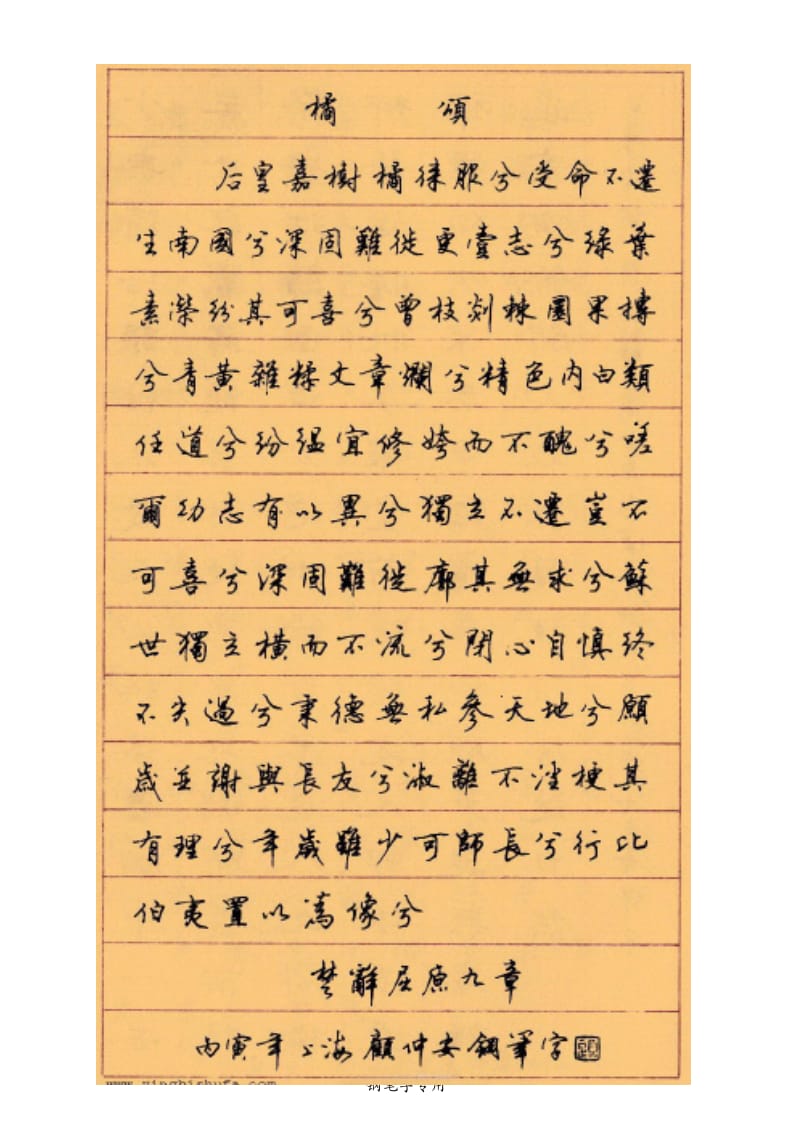 橘 頌
后皇嘉樹橘徠服兮受命不遷
生南國兮深固難徙更壹志兮綠葉
素榮紛其可喜兮曾枝剡棘圜果摶
兮青黃雜糅文章爛兮精色內白類
任道兮紛緼宜修姱而不醜兮嗟
爾幼志有以異兮獨立不遷豈不
可喜兮深固難徙廓其無求兮蘇
世獨立橫而不流兮閉心自慎終
不失過兮秉德無私參天地兮願
歲並謝與長友兮淑離不淫梗其
有理兮年歲雖少可師長兮行比
伯夷置以為像兮
楚辭屈原九章
丙寅年上海顧仲安鋼筆字
钢笔字专用